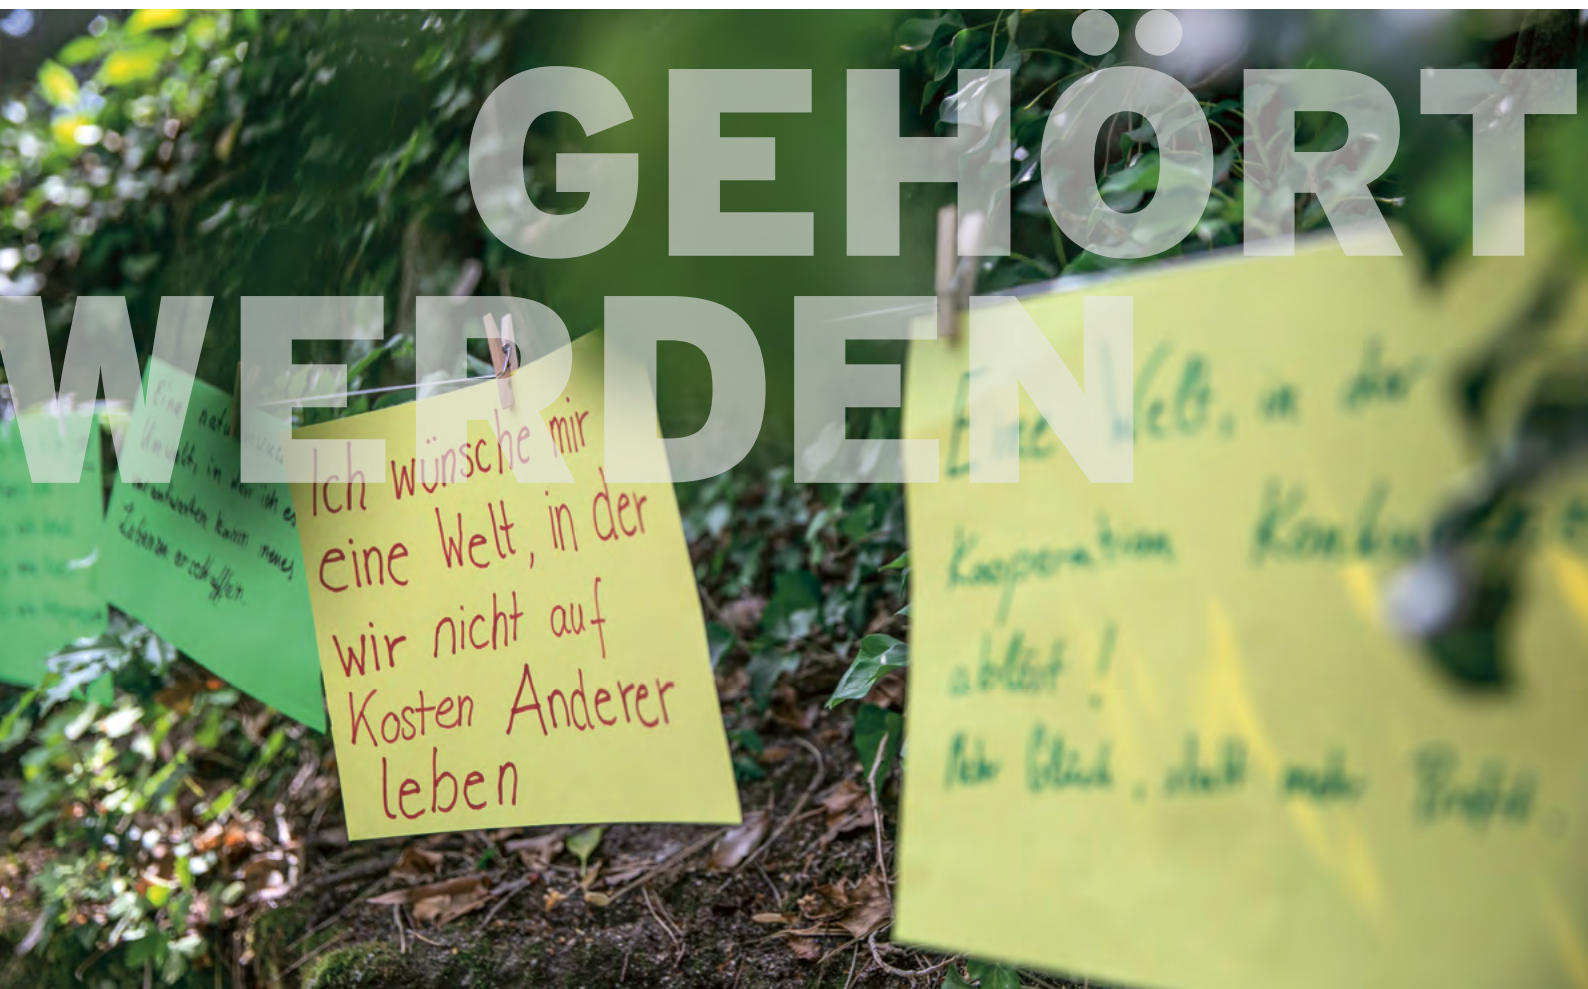 GEHÖRT
WERDEN
Eine
Umwelt, in der ich es
verantworten kann neues
Leben zu erschaffen.
Ich wünsche mir
eine Welt, in der
wir nicht auf
Kosten Anderer
leben
Eine Welt, in der
Kooperation
ablöst!
Mehr Glück, statt mehr Profit.